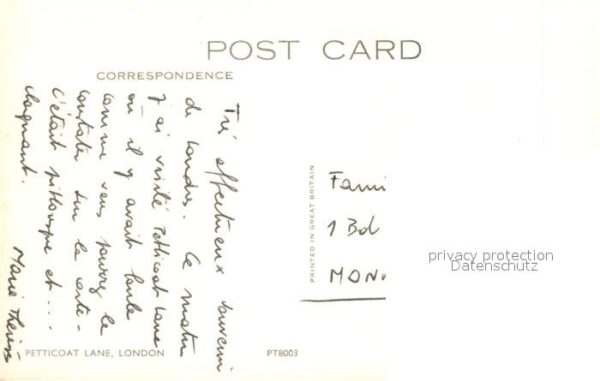 POST CARD
CORRESPONDENCE
Tré affectueux souvenir
de Londres. Ce matin
j'ai visité Petticoat Lane
où il y avait foule
comme vous pouvez le
constater sur la carte-
c'était pittoresque et ...
Marie Thérèse
PRINTED IN GREAT BRITAIN
Fami
1 Bd
MON
privacy protection
Datenschutz
PETTICOAT LANE, LONDON
PT8003